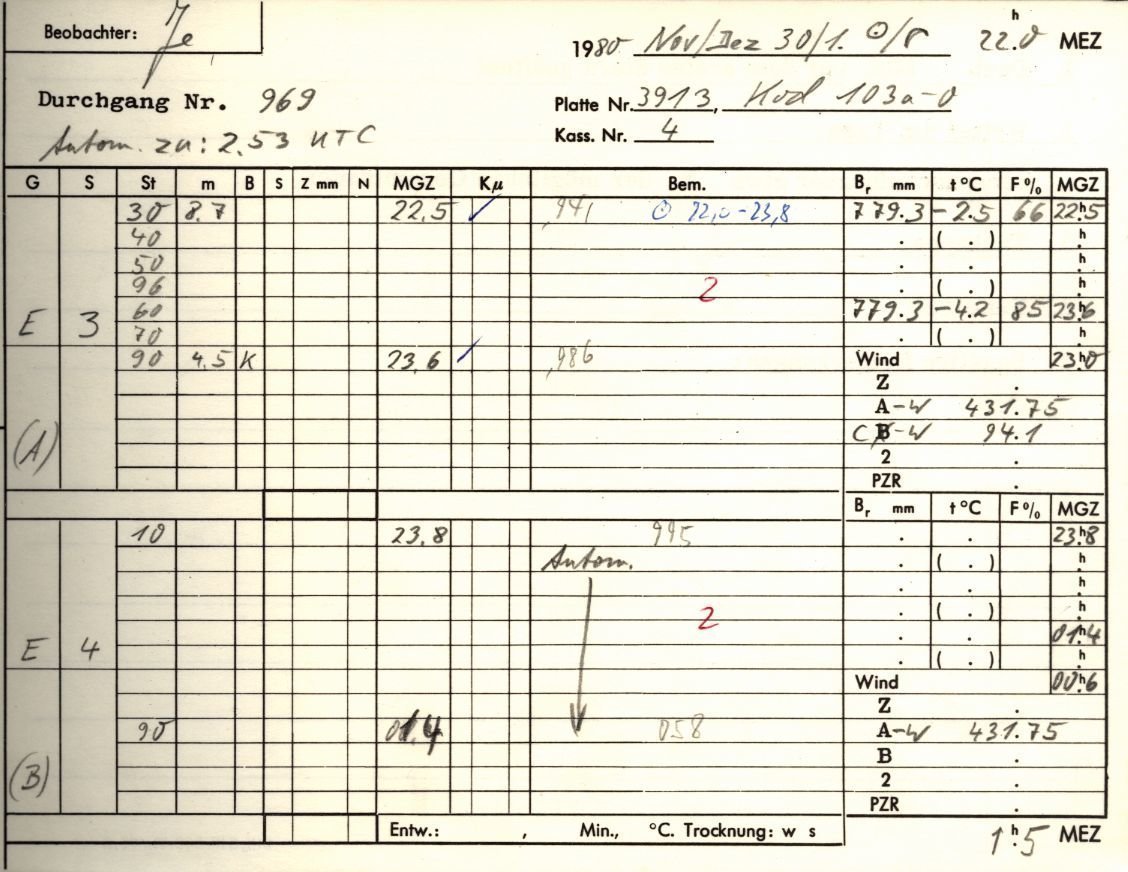 Beobachter: Je
1980 Nov/Dez 30/1. ⊙/r 22h.0 MEZ
Durchgang Nr. 969
Platte Nr. 3913, Kod 103a-0
Autom. zu: 2.53 UTC
Kass. Nr. 4
G S St m B S Z mm N MGZ Kμ Bem. Br mm t °C F% MGZ
30 8.7 22,5 ✓ ,941 ⊙ 22,0-23,8 779.3 -2.5 66 22h.5
40 . ( . ) h.
50 . . h.
96 2 . ( . ) h.
E 3 60 779.3 -4.2 85 23h.6
70 . ( . ) h.
90 4.5 K 23,6 ✓ ,986 Wind 23h.0
Z .
A-W 431.75
(A) C B-W 94.1
2 .
PZR .
Br mm t °C F% MGZ
10 23,8 995 . . 23h.8
Autom. . ( . ) h.
. . h.
2 . ( . ) h.
. . 01h.4
E 4 . ( . ) h.
Wind 00h.6
Z .
90 01.4 058 A-W 431.75
B .
(B) 2 .
PZR .
Entw.: , Min., °C. Trocknung: w s
1h.5 MEZ